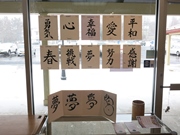 勇気
心
幸福
愛
平和
春
挑戦
夢
努力
感謝
夢
夢
夢